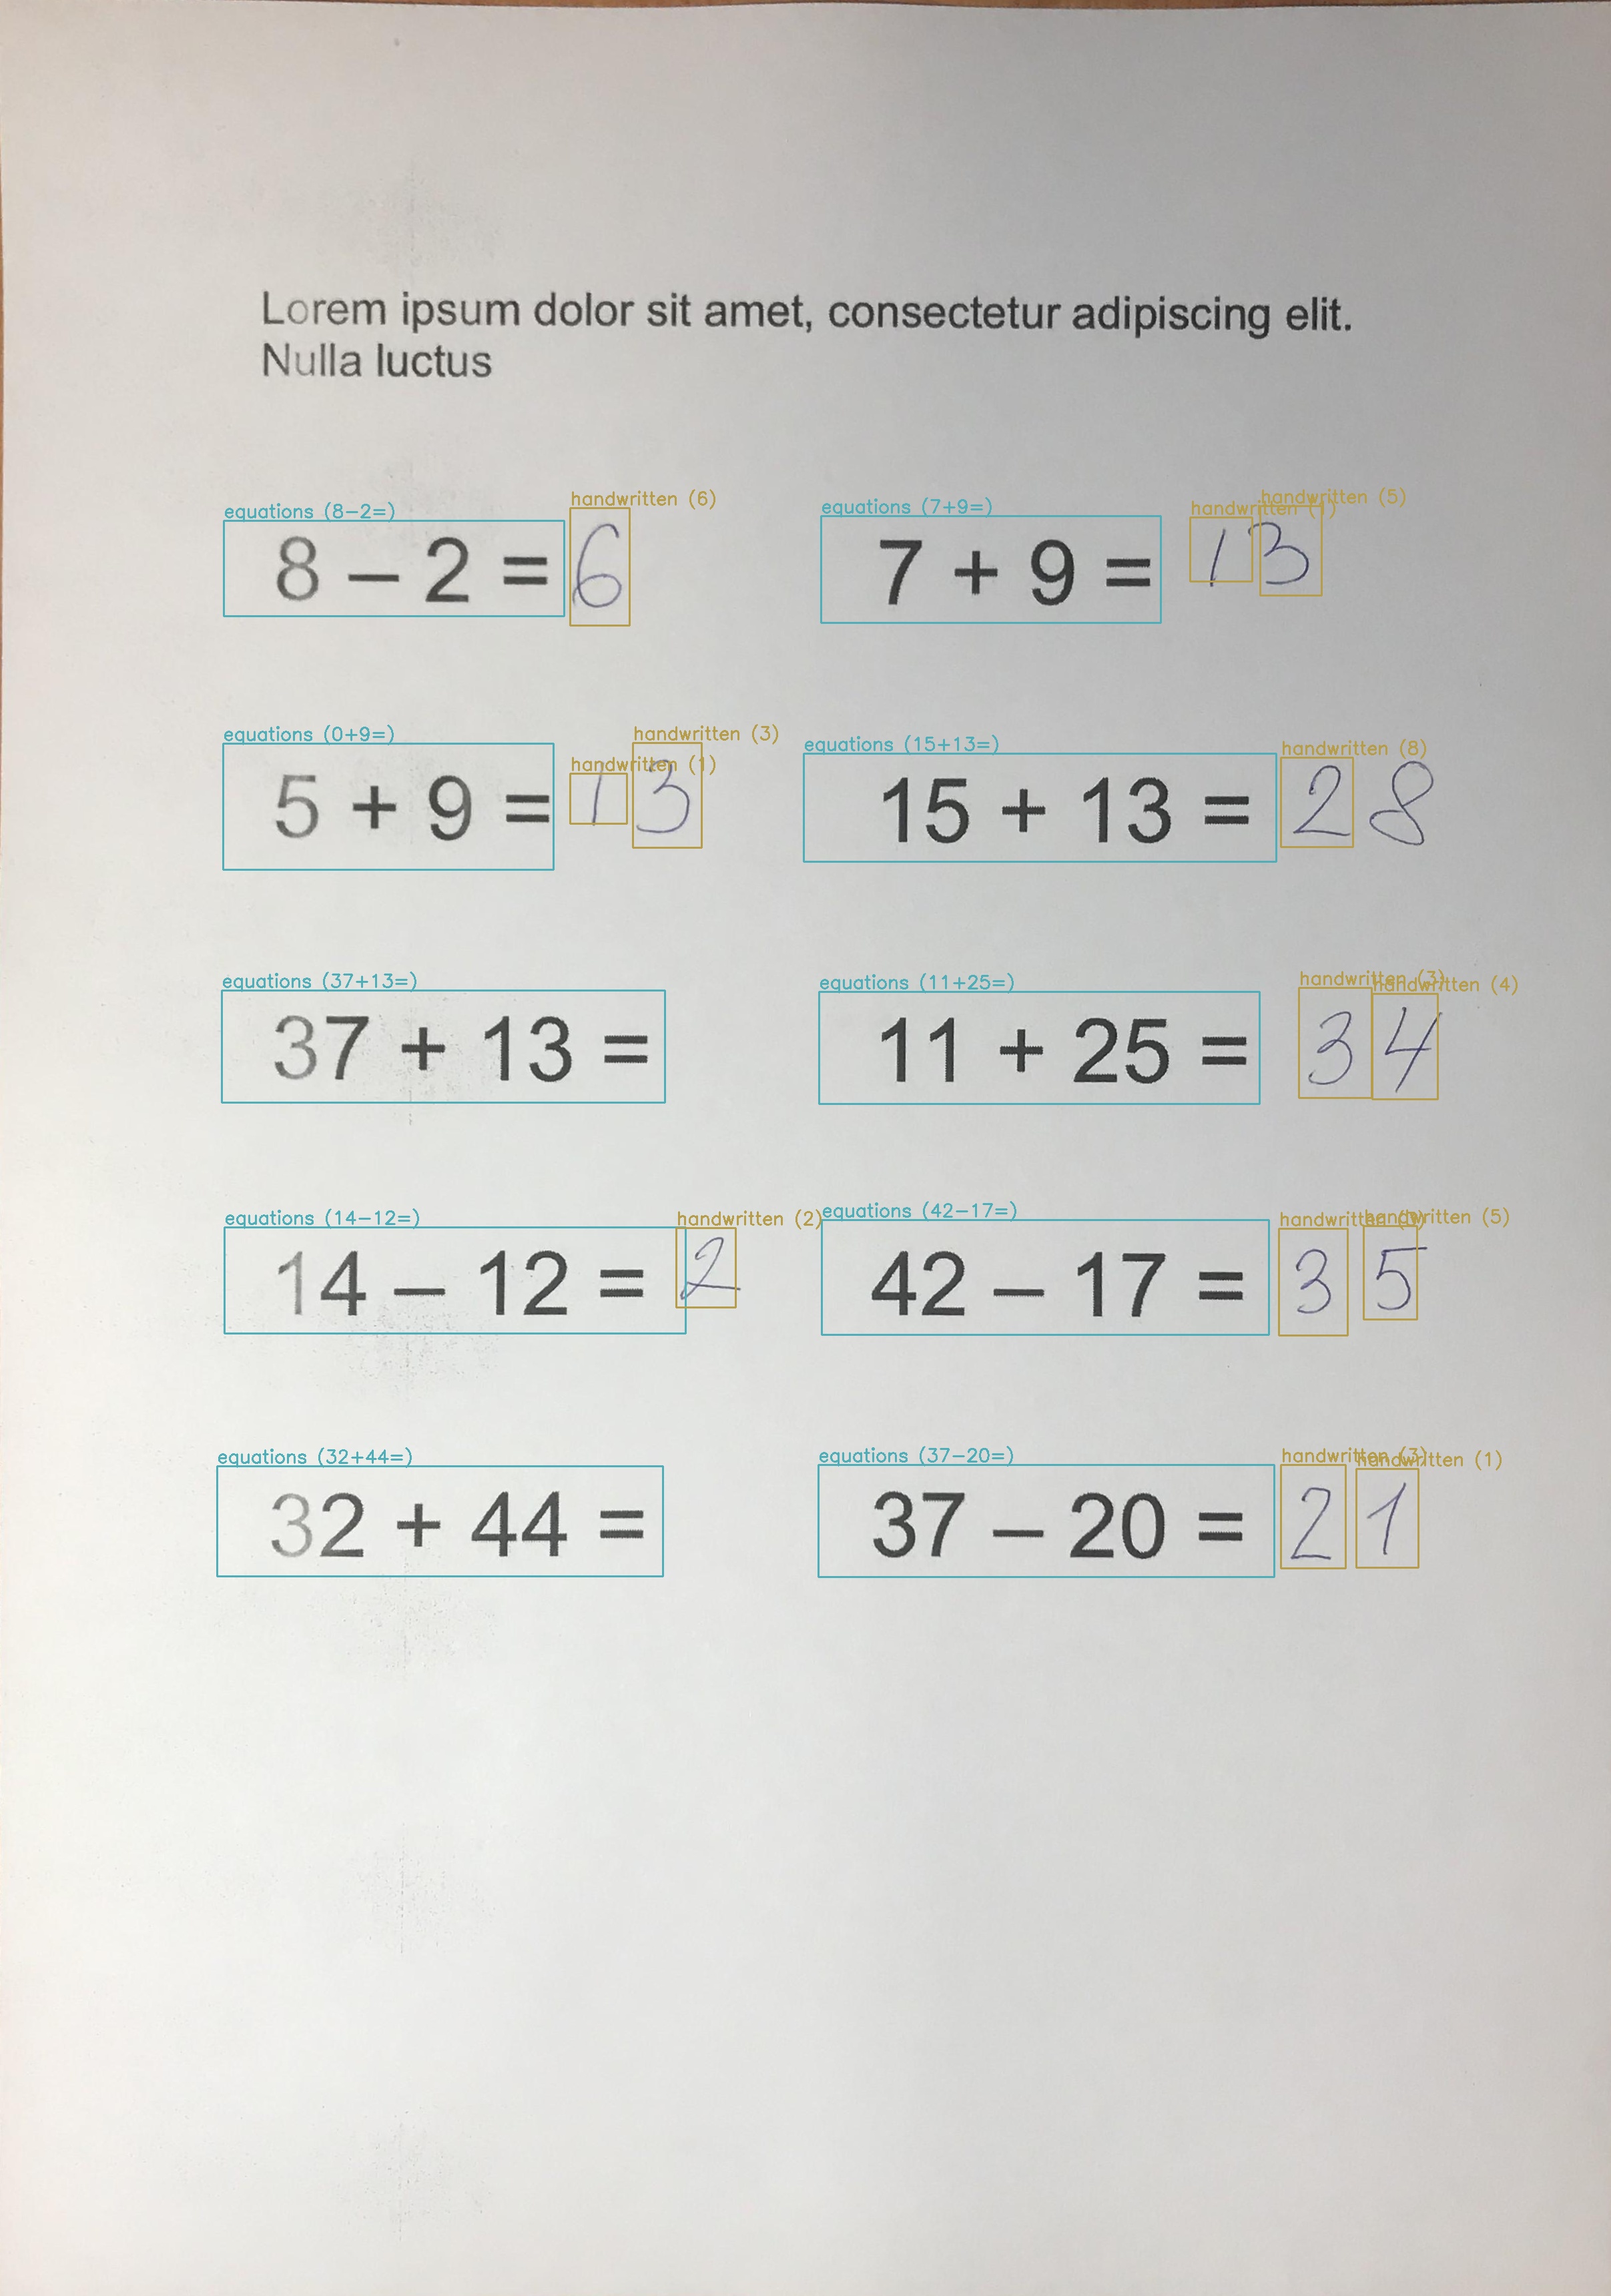 Lorem ipsum dolor sit amet, consectetur adipiscing elit.
Nulla luctus
equations (8-2=) handwritten (6) equations (7+9=) handwritten (1) handwritten (5)
8 – 2 = 6 7 + 9 = 13
equations (0+9=) handwritten (1) handwritten (3) equations (15+13=) handwritten (8)
5 + 9 = 13 15 + 13 = 28
equations (37+13=) equations (11+25=) handwritten (3) handwritten (4)
37 + 13 = 11 + 25 = 34
equations (14-12=) handwritten (2) equations (42-17=) handwritten handwritten (5)
14 – 12 = 2 42 – 17 = 35
equations (32+44=) equations (37-20=) handwritten (3) handwritten (1)
32 + 44 = 37 – 20 = 21